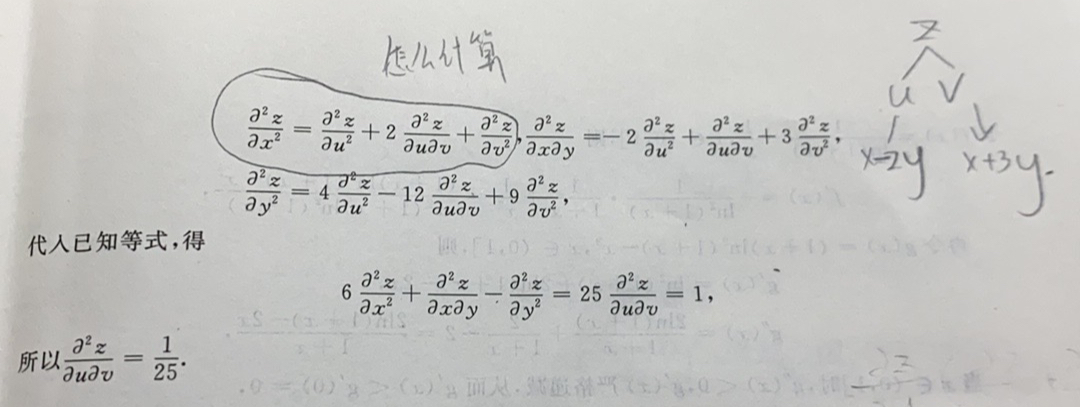 怎么计算
z
u v
x-2y x+3y.
∂²z/∂x² = ∂²z/∂u² + 2 ∂²z/∂u∂v + ∂²z/∂v², ∂²z/∂x∂y = -2 ∂²z/∂u² + ∂²z/∂u∂v + 3 ∂²z/∂v²,
∂²z/∂y² = 4 ∂²z/∂u² - 12 ∂²z/∂u∂v + 9 ∂²z/∂v²,
代入已知等式,得
6 ∂²z/∂x² + ∂²z/∂x∂y - ∂²z/∂y² = 25 ∂²z/∂u∂v = 1,
所以 ∂²z/∂u∂v = 1/25.